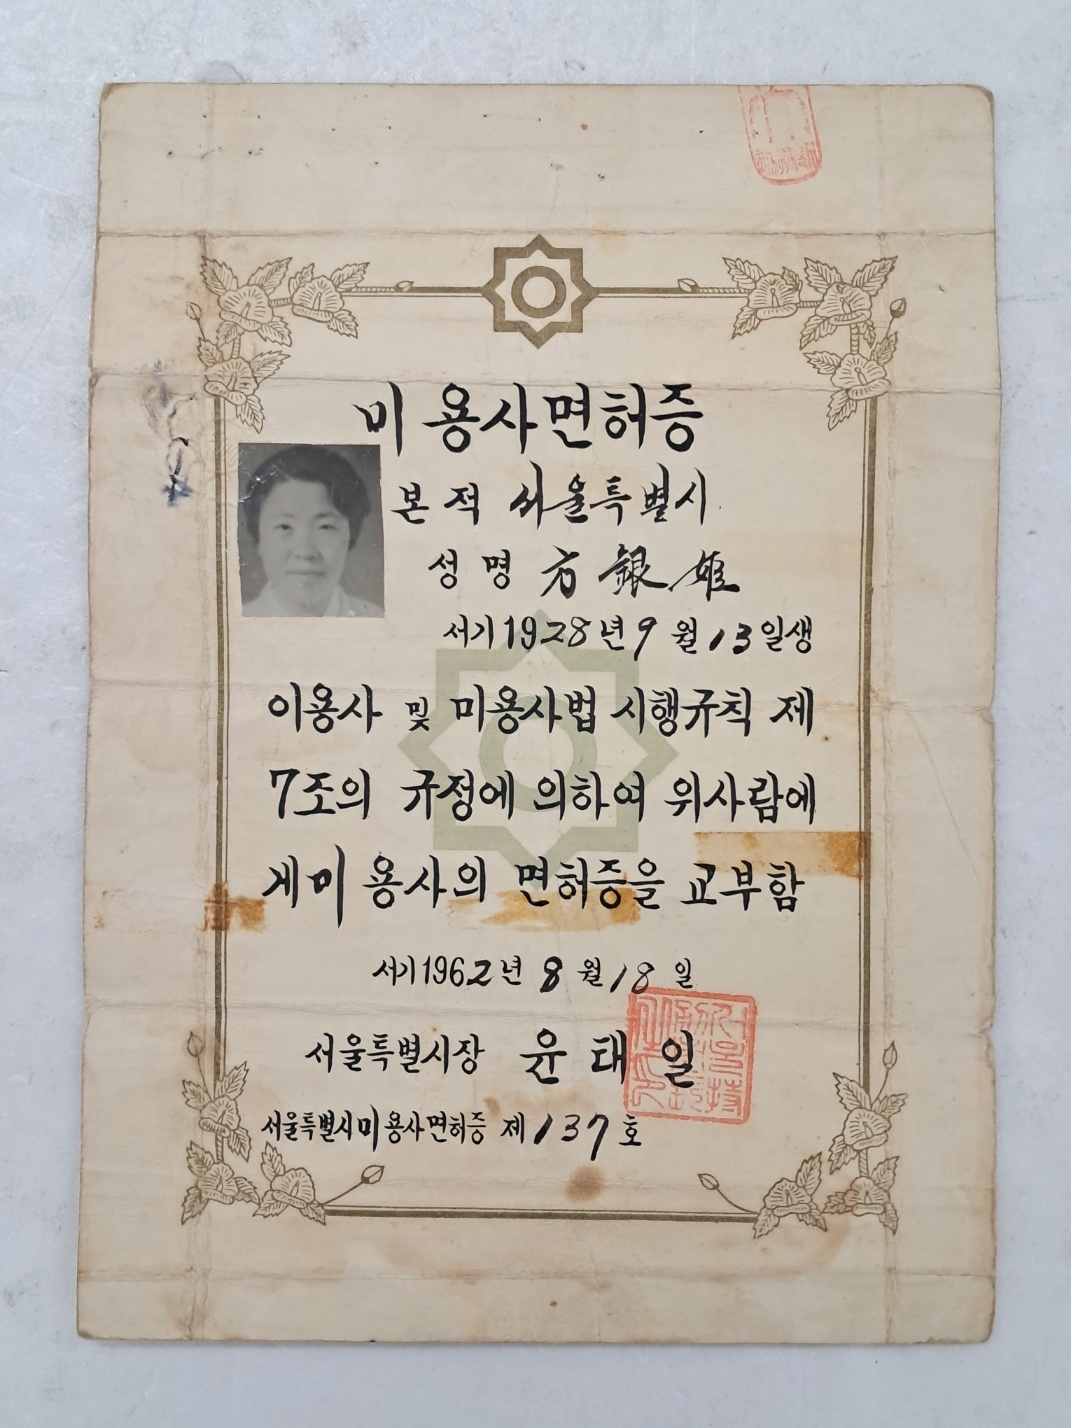 미용사면허증
본적 서울특별시
성명 方銀姬
서기1928년9월13일생
이용사 및 미용사법 시행규칙 제
7조의 규정에 의하여 위사람에
게미용사의 면허증을 교부함
서기1962년 8월18일
서울특별시장 윤태일
서울특별시미용사면허증 제137호